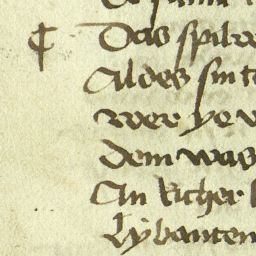 ¶ Das spilw
Al des sin t
wer ye v
dem was
An richer
Lybanten